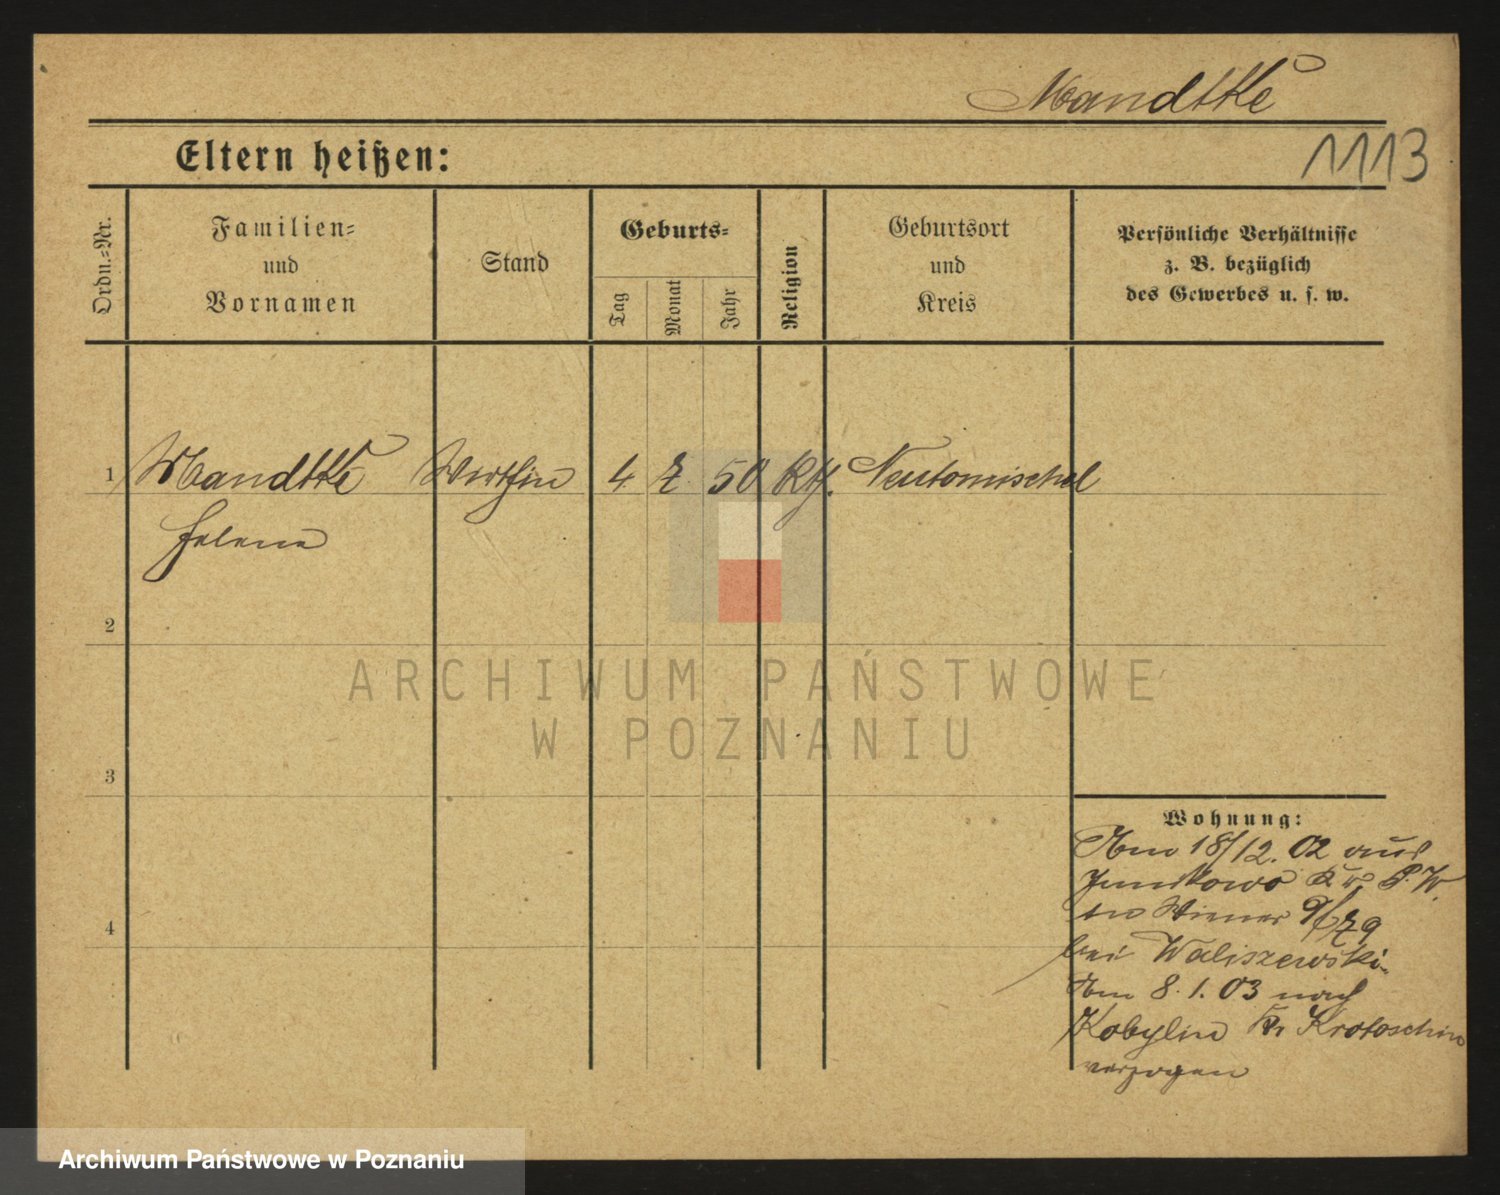 Mandtke
1113
Eltern heißen:
Ordn.-Nr.
Familien-
und
Vornamen
Stand
Geburts-
Tag
Monat
Jahr
Religion
Geburtsort
und
Kreis
Persönliche Verhältnisse
z. B. bezüglich
des Gewerbes u. s. w.
1 Mandtke Wirthin 4 50 Kth. Neutomischel
Helene
2
3
4
Wohnung:
Am 18/12. 02 aus
Junikowo P. W.
Wiener
bei Waliszewski.
Am 8. 1. 03 nach
Kobylin Kr Krotoschin
verzogen
ARCHIWUM PAŃSTWOWE
W POZNANIU
Archiwum Państwowe w Poznaniu